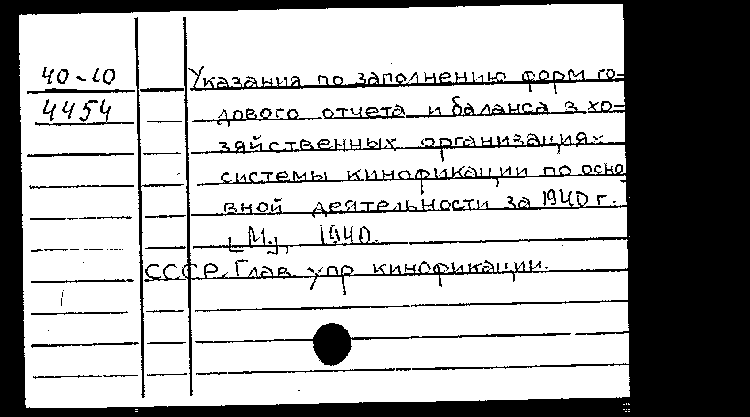 40-10
4454
Указания по заполнению форм го=
дового отчета и баланса в хо=
зяйственных организациях
системы кинофикации по осно
вной деятельности за 1940 г.
[М.], 1940.
СССР. Глав упр кинофикации.